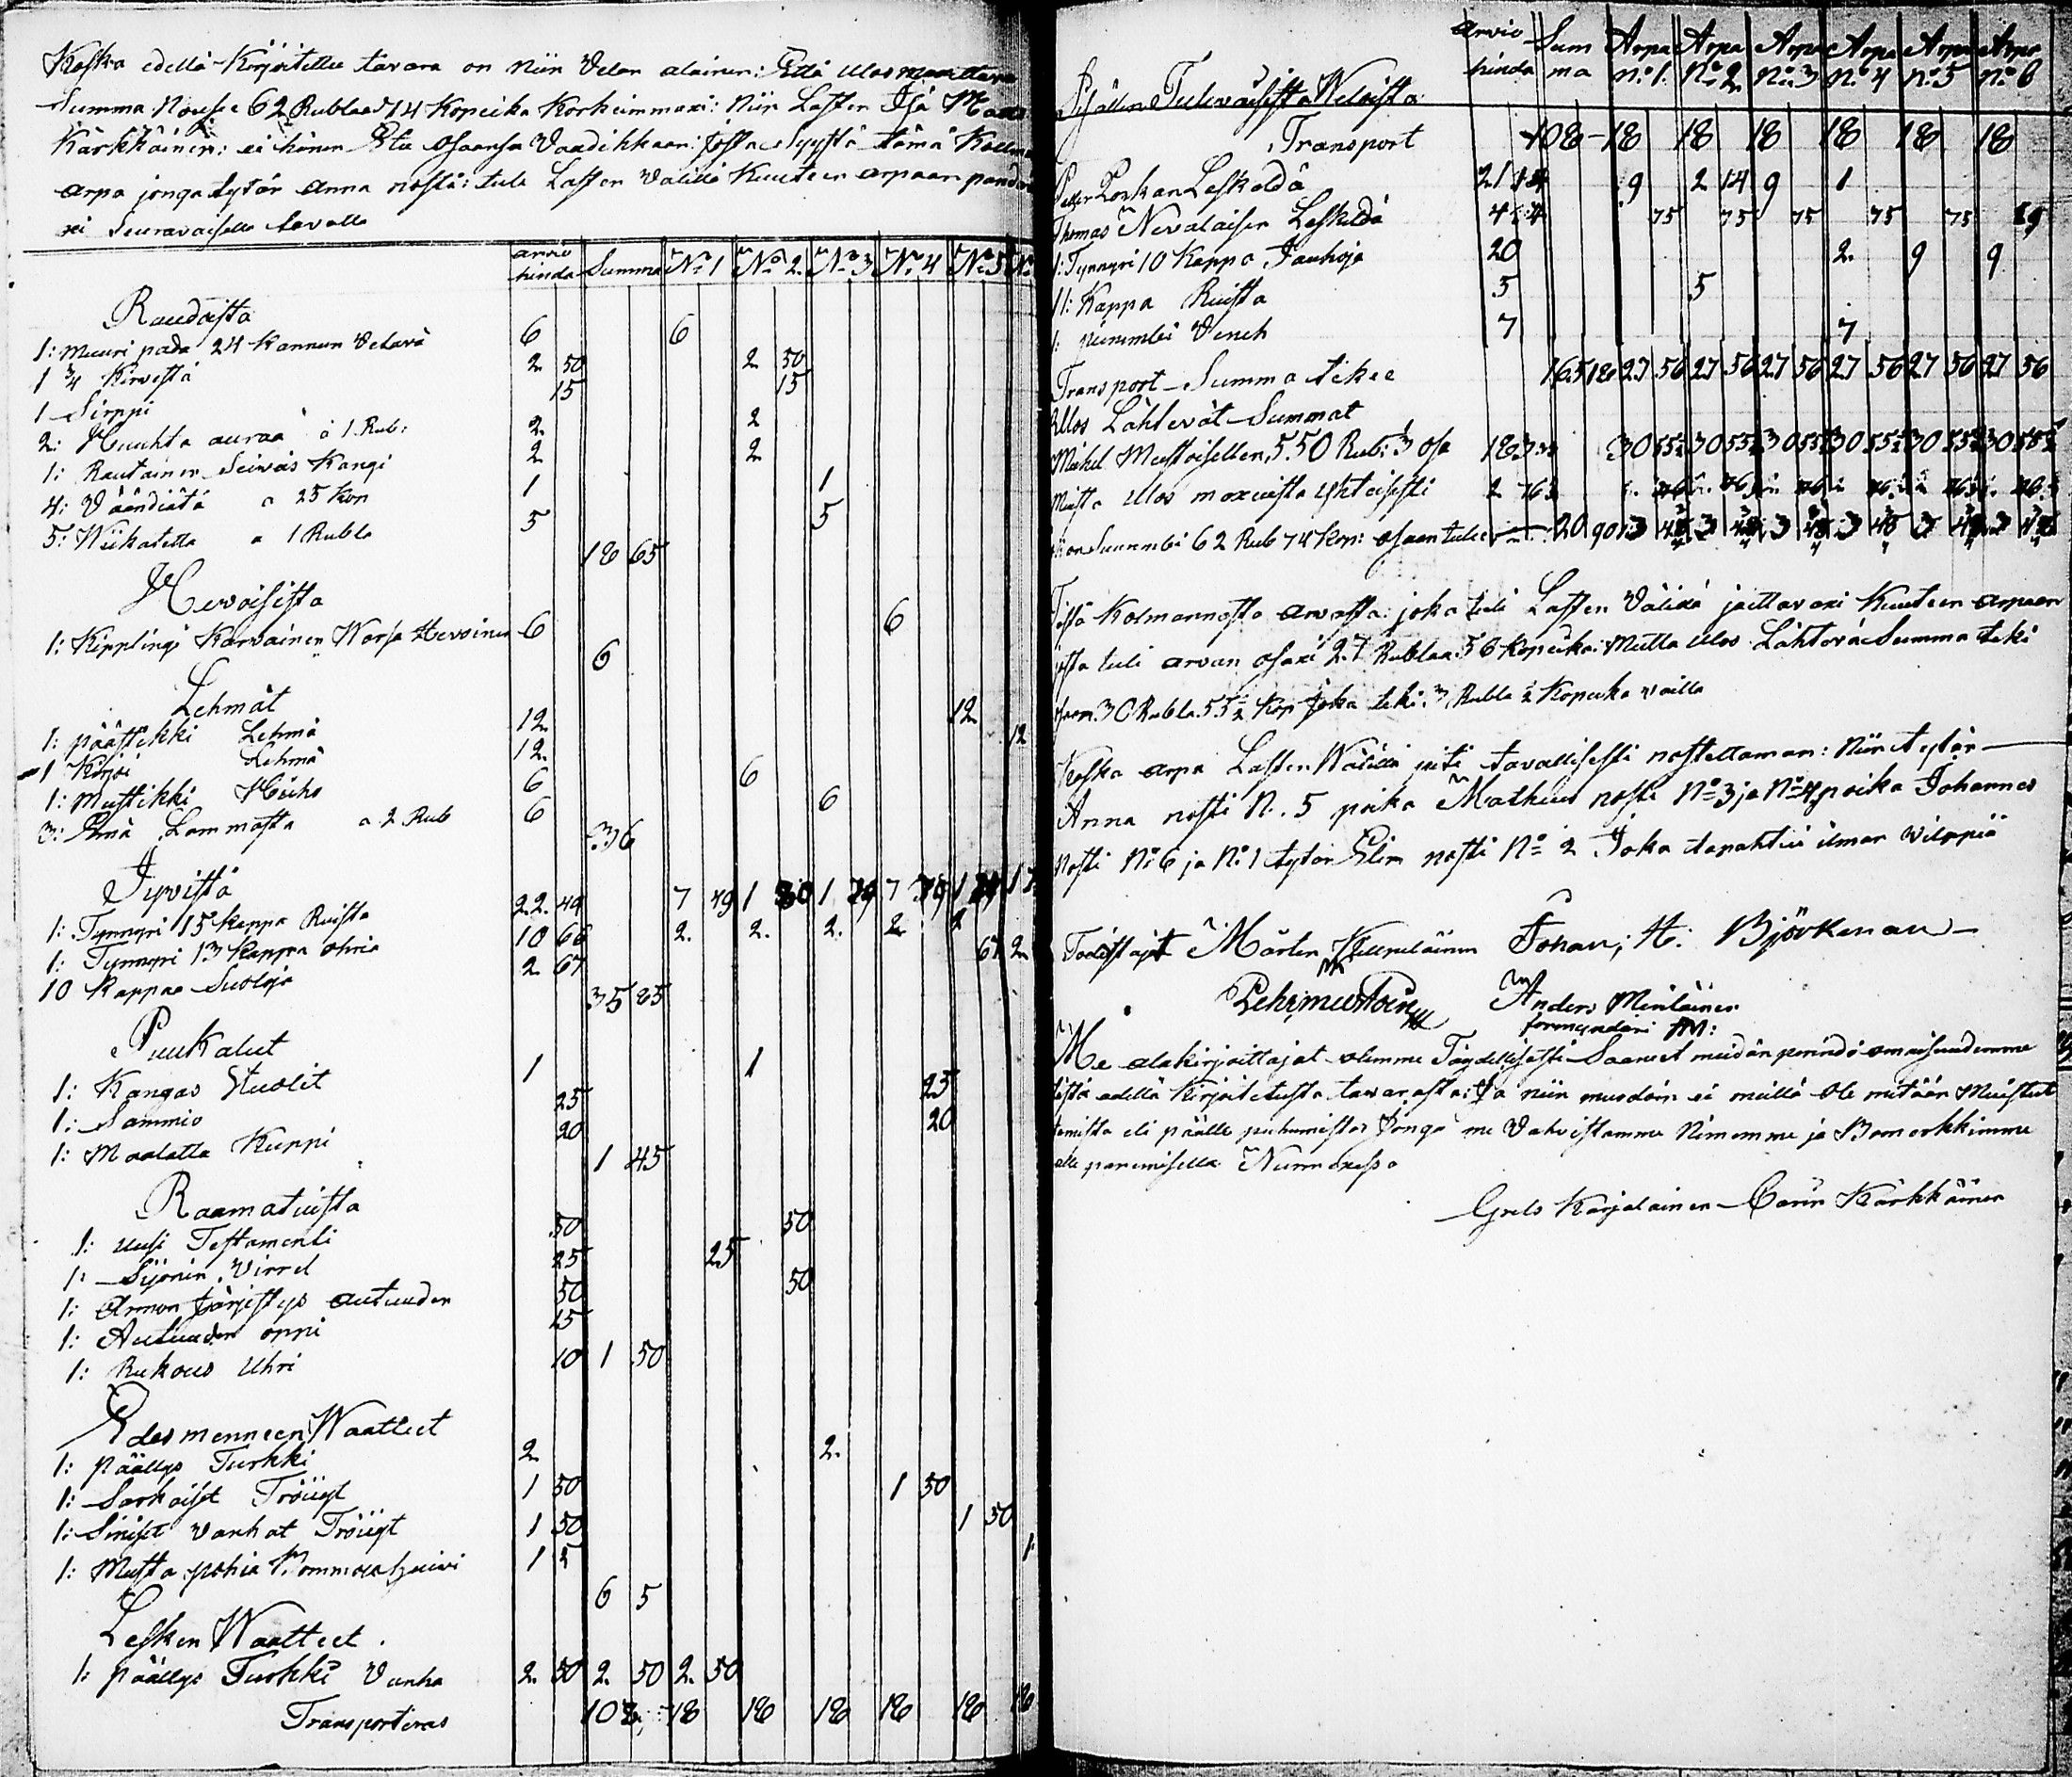 Koska edellä Kirjoitettu tavara on niin Velan alainen: Että Ulos maxettava
Summa Nousee 62 Rublaa 14 Kopeika Korkeimmaxi: Niin Lasten Isä
Kärkkäinen: ei hänen Etu osaansa Vaadikkaan: josta Syystä tämä
arpa jonga tytär Anna nosti: tule Lasten Välillä Kuuteen arpaan
xi Seuravaisella tavalla
arvio hinda Summa No 1 No 2. No 3 No 4 No 5 No
Raudoista
1: Muuri pada 24 Kannun Vetävä 6 6
1 3/4 Kirvestä 2 50 2 50
1 Sirppi 15 15
2: Huuhta auraa à 1 Rub: 2 2
1: Rautainen Seiväs Kangi 2 2
4: Väändiätä a 25 Kop 1 1
5: Wiikatetta a 1 Rubla 5 5
18 65
Hevoisista
1: Kipplingi Karvainen Warsa Hevoinen 6 6
6
Lehmät
1: päästikki Lehmä 12 12
1 Kirjoi Lehmä 12. 12
1: Mustikki Hieho 6 6
3: Emä Lammasta a 2 Rub 6 6
36
Jyvistä
1: Tynnyri 15 kappa Ruista 22. 49 7 49 1 1 7 1
1: Tynnyri 13 Kappa ohria 10 66 2. 2. 2. 2 2
10 Kappaa Suoloja 2 67 67 2
35 85
Puukalut
1: Kangas Stuolit 1 1
1: Sammio 25 25
1: Maalattu Kuppi 20 20
1 45
Raamatuista
1: Uusi Testamenti 50 50
1: Siionin Virret 25 25
1: Armon järjestys autuuden 50 50
1: Autuuden oppi 15
1: Rukous Uhri 10 1 50
Edesmenneen Waatteet
1: päällys Turkki 2 2.
1: Sarkaiset Tröiiyt 1 50 1 50
1: Siniset vanhat Tröiiyt 1 50 1 50
1: Musta pohja 1 5 1
6 5
Lesken Waatteet
1: päällys Turkki Vanha 2. 50 2. 50 2. 50
Transporteras 108 18 18 18 18 18 18
arvio hinda Summa Arpa no 1. Arpa No 2 Arpa No 3 Arpa No 4 Arpa no 5 Arpa no 6
Sisällen Tulevaisista Weloista
Transport 108 - 18 18 18 18 18 18
Leskeldä 21 14 9 2 14 9 1
Thomas Nevalaisen Leskeldä 4 75 75 75 75 75
1: Tynnyri 10 Kappa Jauhoja 20 2. 9 9
11: Kappa Ruista 5 5
1: Veneh 7 7
Transport Summa tekee 165 18 27 56 27 56 27 56 27 56 27 56 27 56
Ulos Lähtevät Summat
Mikel Mustoisellen, 5.50 Rub: 3 osa 183 30 55 1/2 30 55 1/2 30 55 1/2 30 55 1/2 30 55 1/2 30 55 1/2
Muista Ulos maxuista yhteisesti 2 76
Suurembi 62 Rub 74 Kop: osaan tulee 20 90 3 3 3 3 3 3
Tästä Kolmannesta arvasta: joka tuli Lasten Välillä jaettavaxi Kuuteen arpaan
josta tuli arvan osaxi 27 Rublaa: 56 Kopeika: Mutta Ulos Lähtevä Summa teki
30 Rubla. 55 1/2 Kop Joka teki: 3 Rubla Kopeika vailla
Koska arpa Lasten Wälillä piti tavallisesti nostettaman: Niin tytär
Anna nosti N. 5 poika Matheus nosti No 3 ja No 4 poika Johannes
Nosti No 6 ja No 1 tytär Elin nosti No 2 Joka tapahtui ilman vilppiä
Todistajat Mårten Johan; H: Björkman
Anders Miniläinen
formyndäri AM:
Me alakirjoittajat olemme Täydellisesti Saaneet meidän perindö omaisuudemme
tästä edellä Kirjoitetusta tavarasta: Ja niin muodoin ei meillä Ole mitään Muistut
tamista eli päälle puhumista: Jonga me Vahvistamme Nimemme ja Bomerkkimme
alle panemisella Nurmexessa
Grels Karjalainen Carin Kärkkäinen